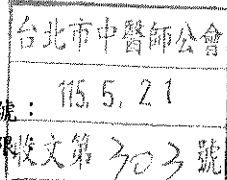 台北市中醫師公會
號：
115. 5. 21
限
收文第303號